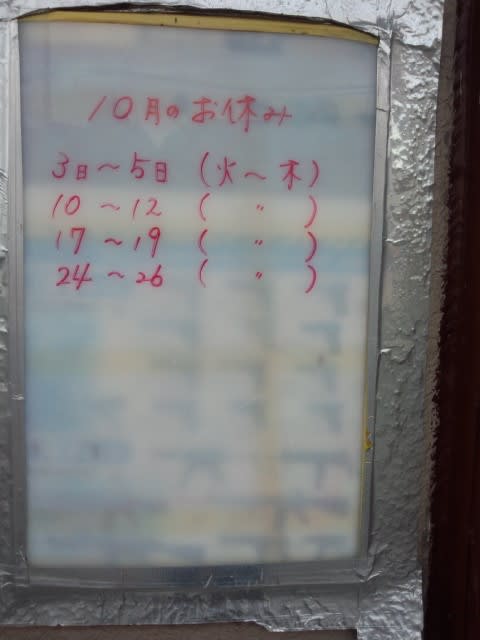 10月のお休み
3日〜5日 (火〜木)
10〜12 ( 〃 )
17〜19 ( 〃 )
24〜26 ( 〃 )